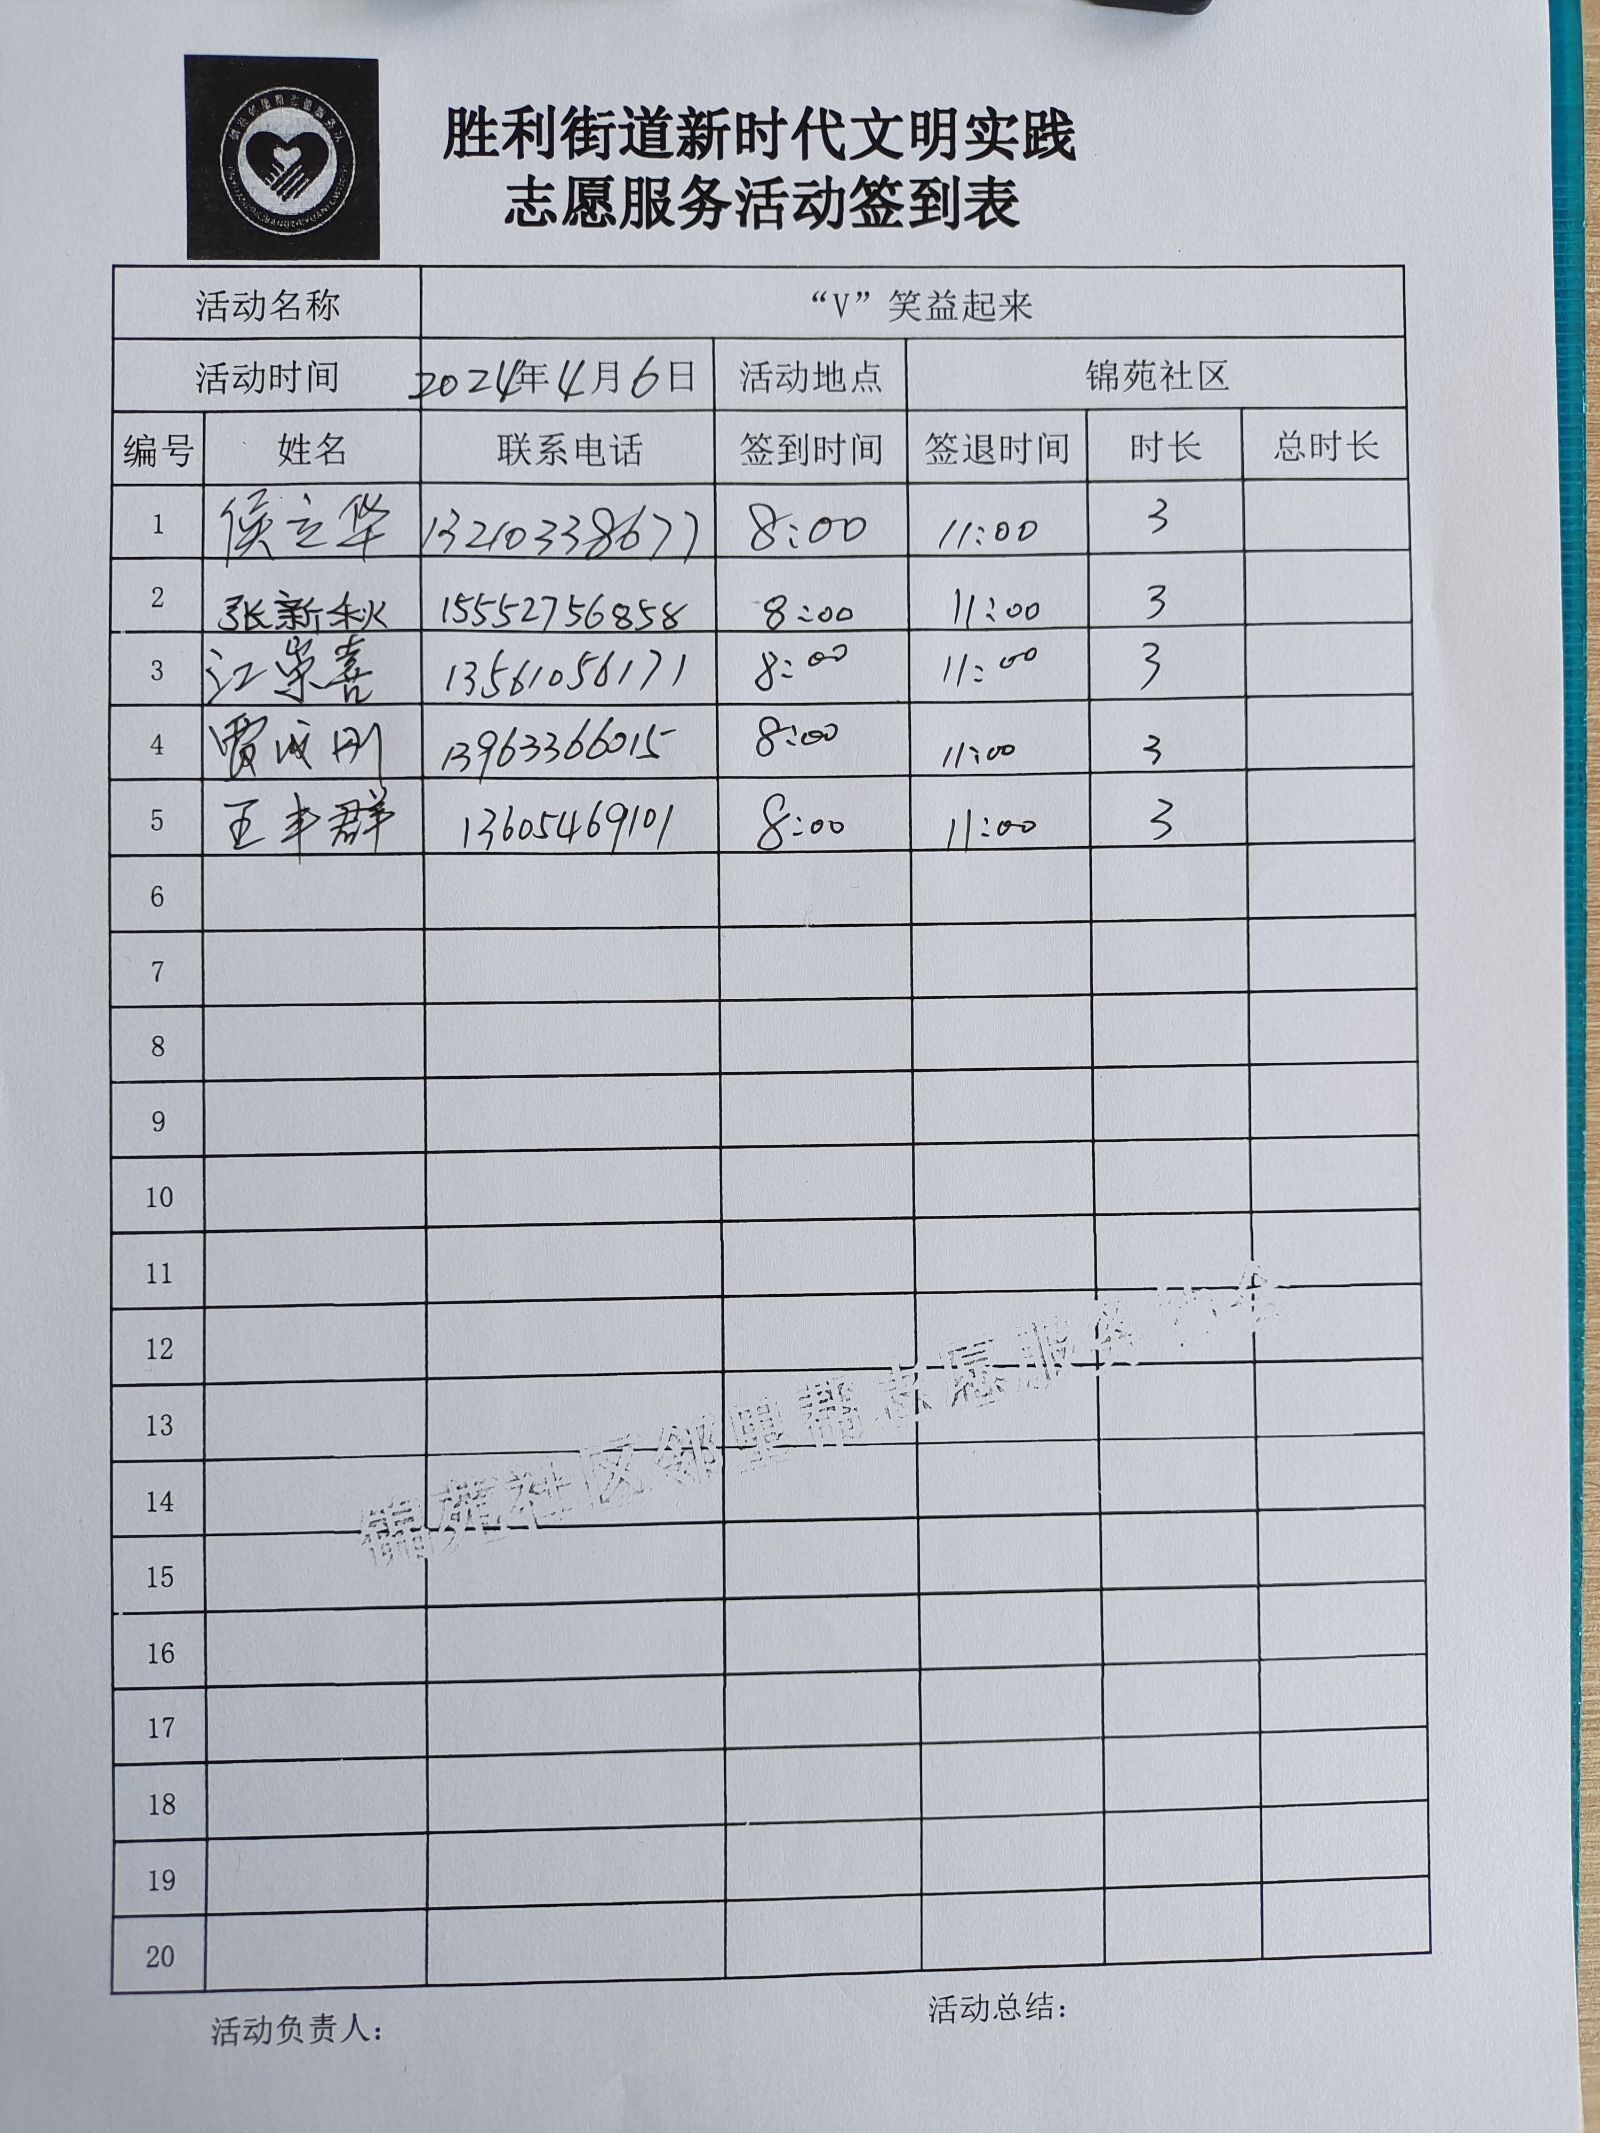 胜利街道新时代文明实践
志愿服务活动签到表
活动名称 “V”笑益起来
活动时间 2024年4月6日 活动地点 锦苑社区
编号 姓名 联系电话 签到时间 签退时间 时长 总时长
1 侯立华 13210338677 8:00 11:00 3
2 张新秋 15552756858 8:00 11:00 3
3 江崇喜 13561056171 8:00 11:00 3
4 贾成刚 13963366015 8:00 11:00 3
5 王丰群 13605469101 8:00 11:00 3
6
7
8
9
10
11
12
13
14
15
16
17
18
19
20
锦苑社区邻里帮志愿服务协会
活动负责人：
活动总结：